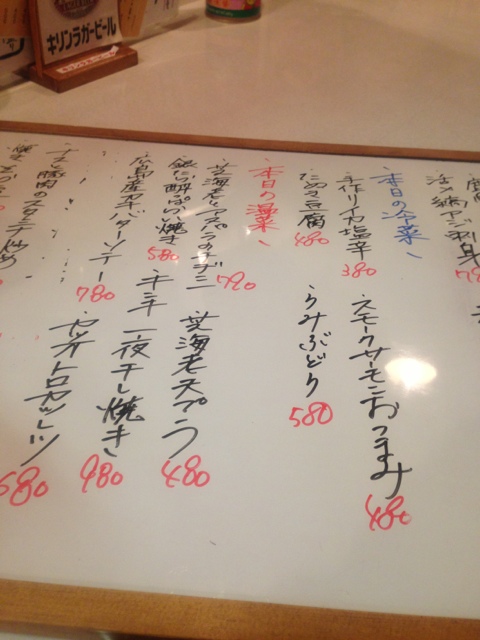 活〆縞アジ刺身
本日の冷菜
手作りイカ塩辛
380
スモークサーモンおつまみ
480
たぬき豆腐
480
うみぶどう
580
本日の温菜
芝海老とアスパラのチヂミ
790
芝海老天プラ
480
銀だら酔っぱらい焼き
580
キンキ一夜干し焼き
980
広島産カキバターソテー
780
カツオトロカツレツ
680
豚肉のスタミナ炒め
キリンラガービール